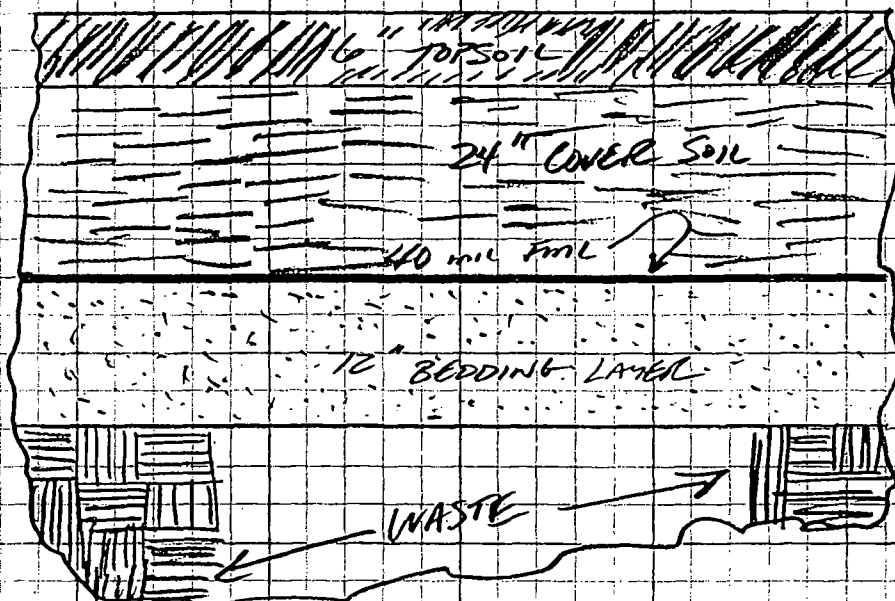 6" TOPSOIL
24" COVER SOIL
40 mil FML
12" BEDDING LAYER
WASTE